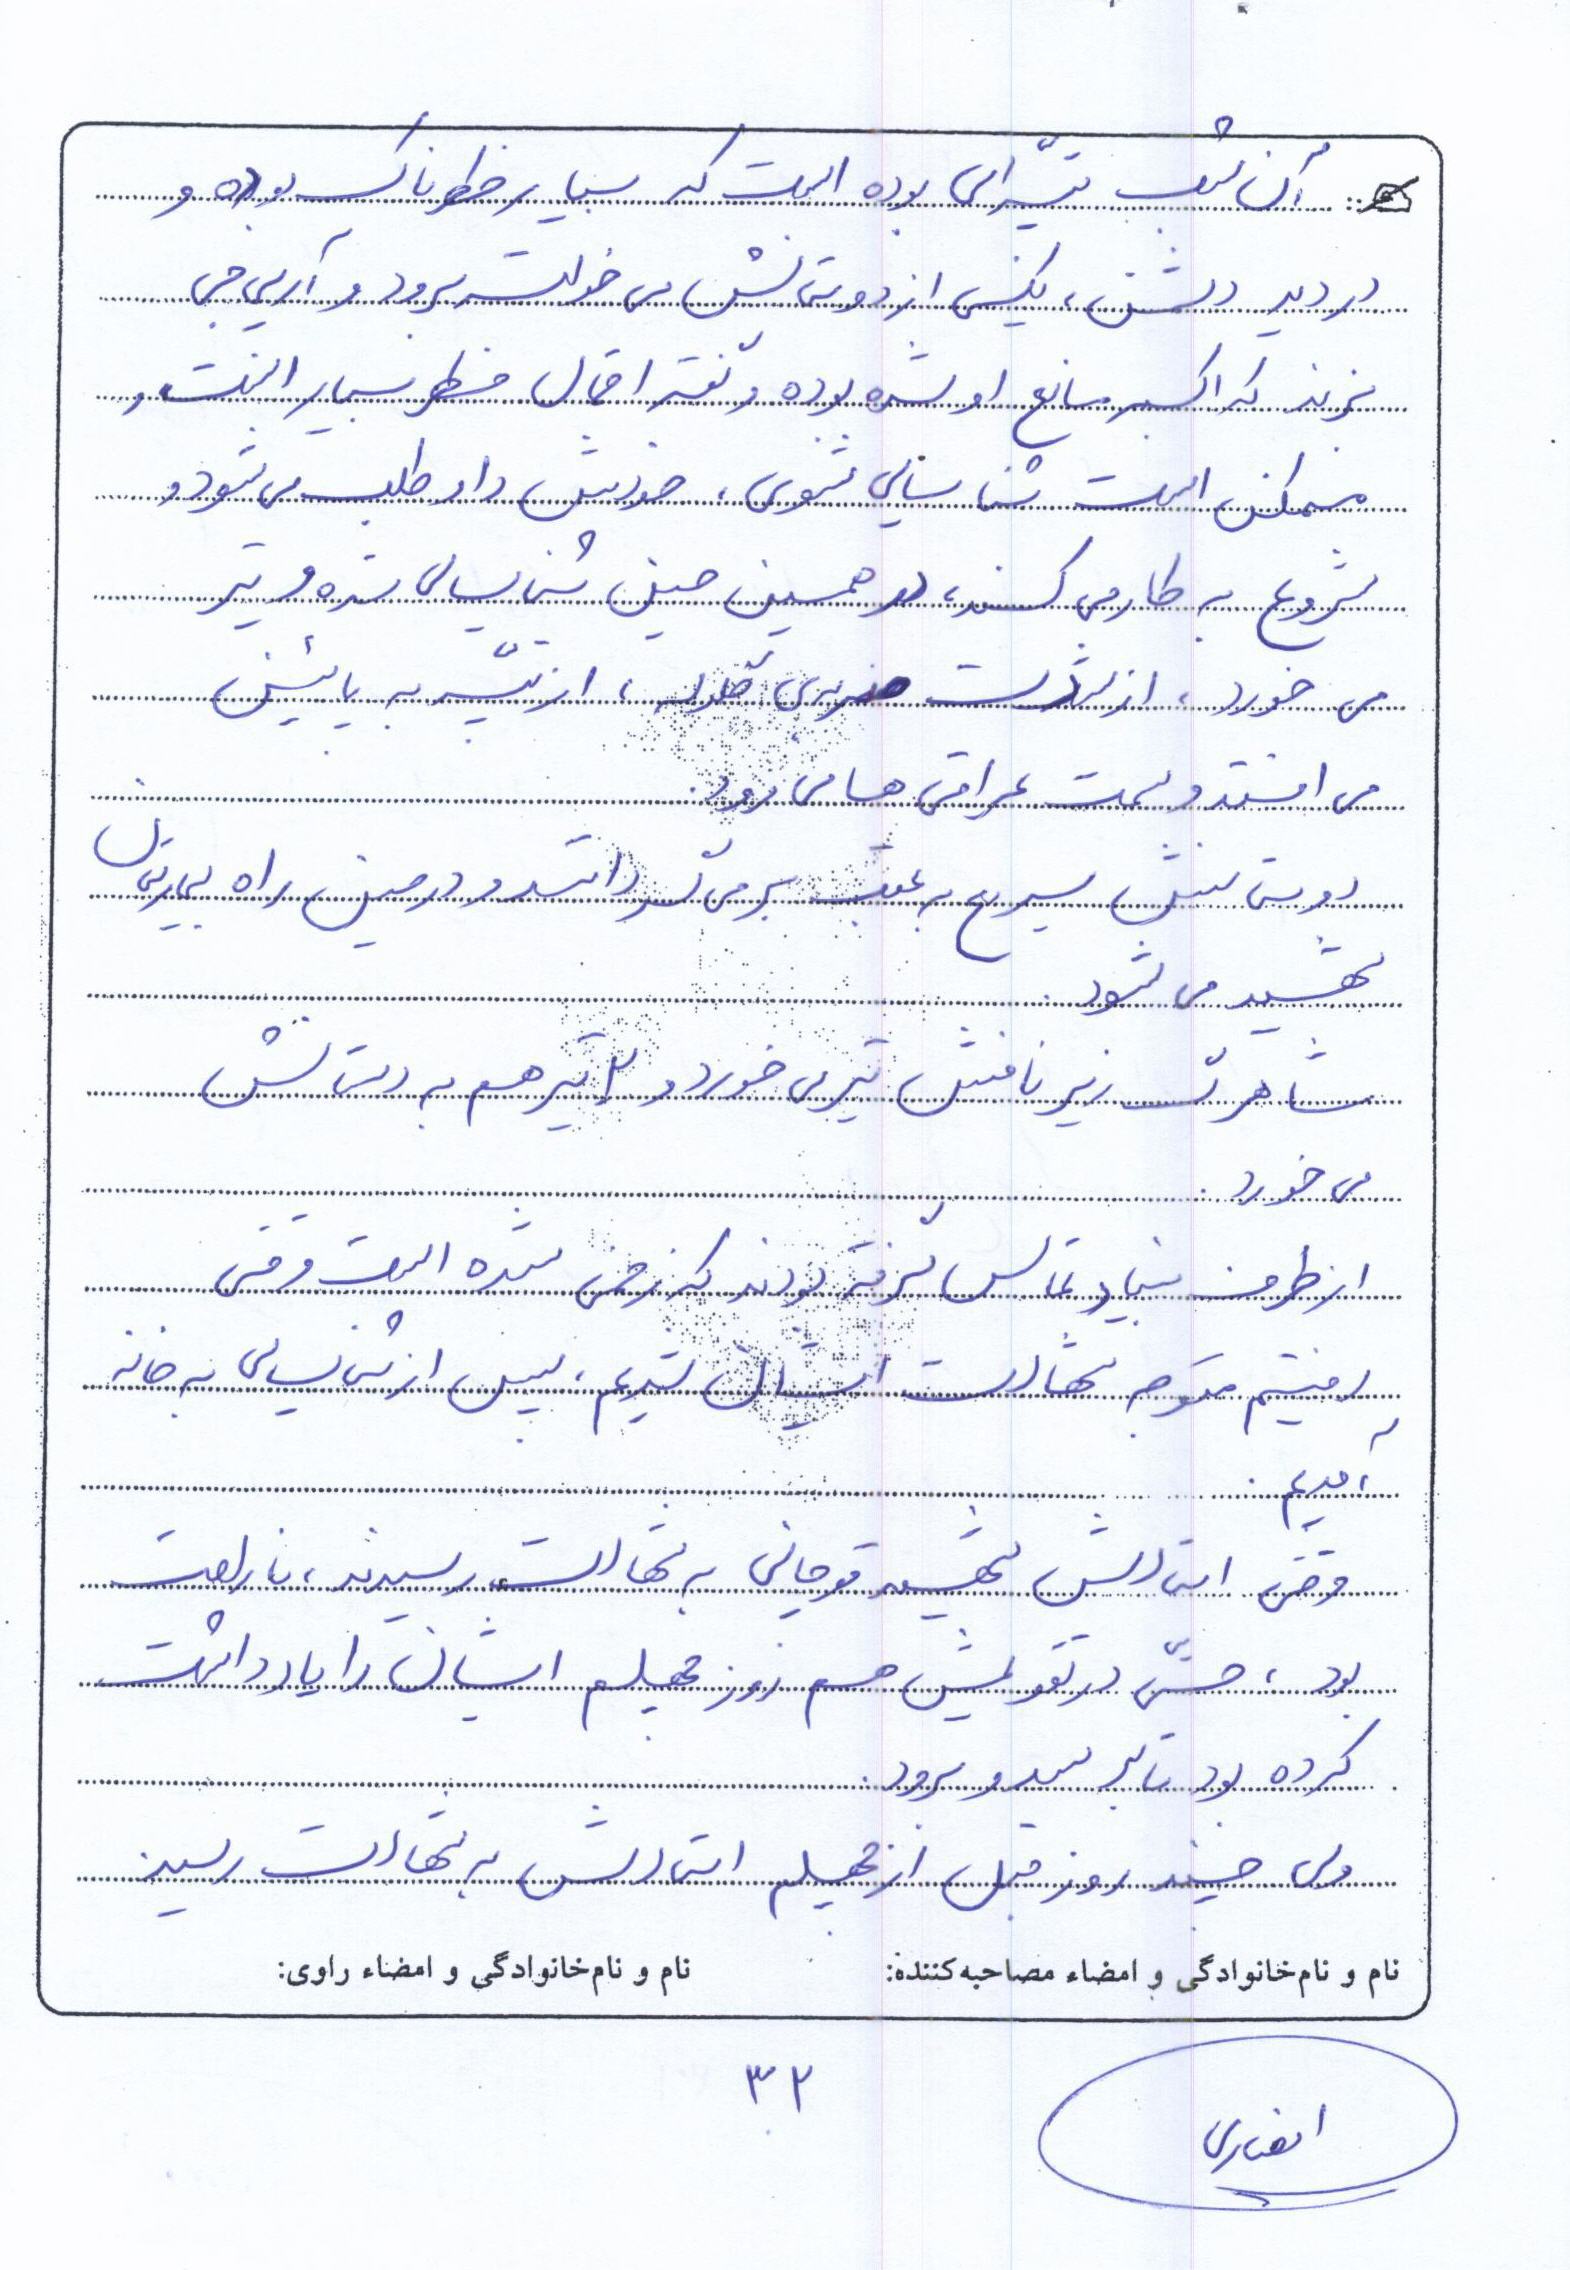 آن شب تپّه‌ای بوده است که بسیار خطرناک بوده و
در دید دشمن، یکی از دوستانش می خواست برود و آرپی جی
بزند که اکبر مانع او شده بوده و گفته احتمال خطر بسیار است و
ممکن است شناسایی شوی، خودش داوطلب می شود و
شروع به کار می کند، در همین حین شناسایی شده و تیر
می خورد، از شدت ضربه‌ی گلوله، از تپّه به پائین
می افتد و سمت عراقی ها می رود.
دوستانش سریع به عقب برمی گردانند و در حین راه بیمارستان
شهید می شود.
شاهرگ زیر نافش تیر می خورد و ۲ تیر هم به دستانش
می خورد.
از طرف بنیاد تماس گرفته بودند که زخمی شده است وقتی
رفتیم متوجه شهادت ایشان شدیم، پس از شناسایی به خانه
آمدیم.
وقتی استادش شهید قوچانی به شهادت رسیدند، ناراحت
بود، حتّی در تقویمش هم روز چهلم ایشان را یادداشت
کرده بود تا برسد و برود.
ولی چند روز قبل از چهلم استادش به شهادت رسید
نام و نام‌خانوادگی و امضاء مصاحبه‌کننده: نام و نام‌خانوادگی و امضاء راوی:
۳۲
انصاری